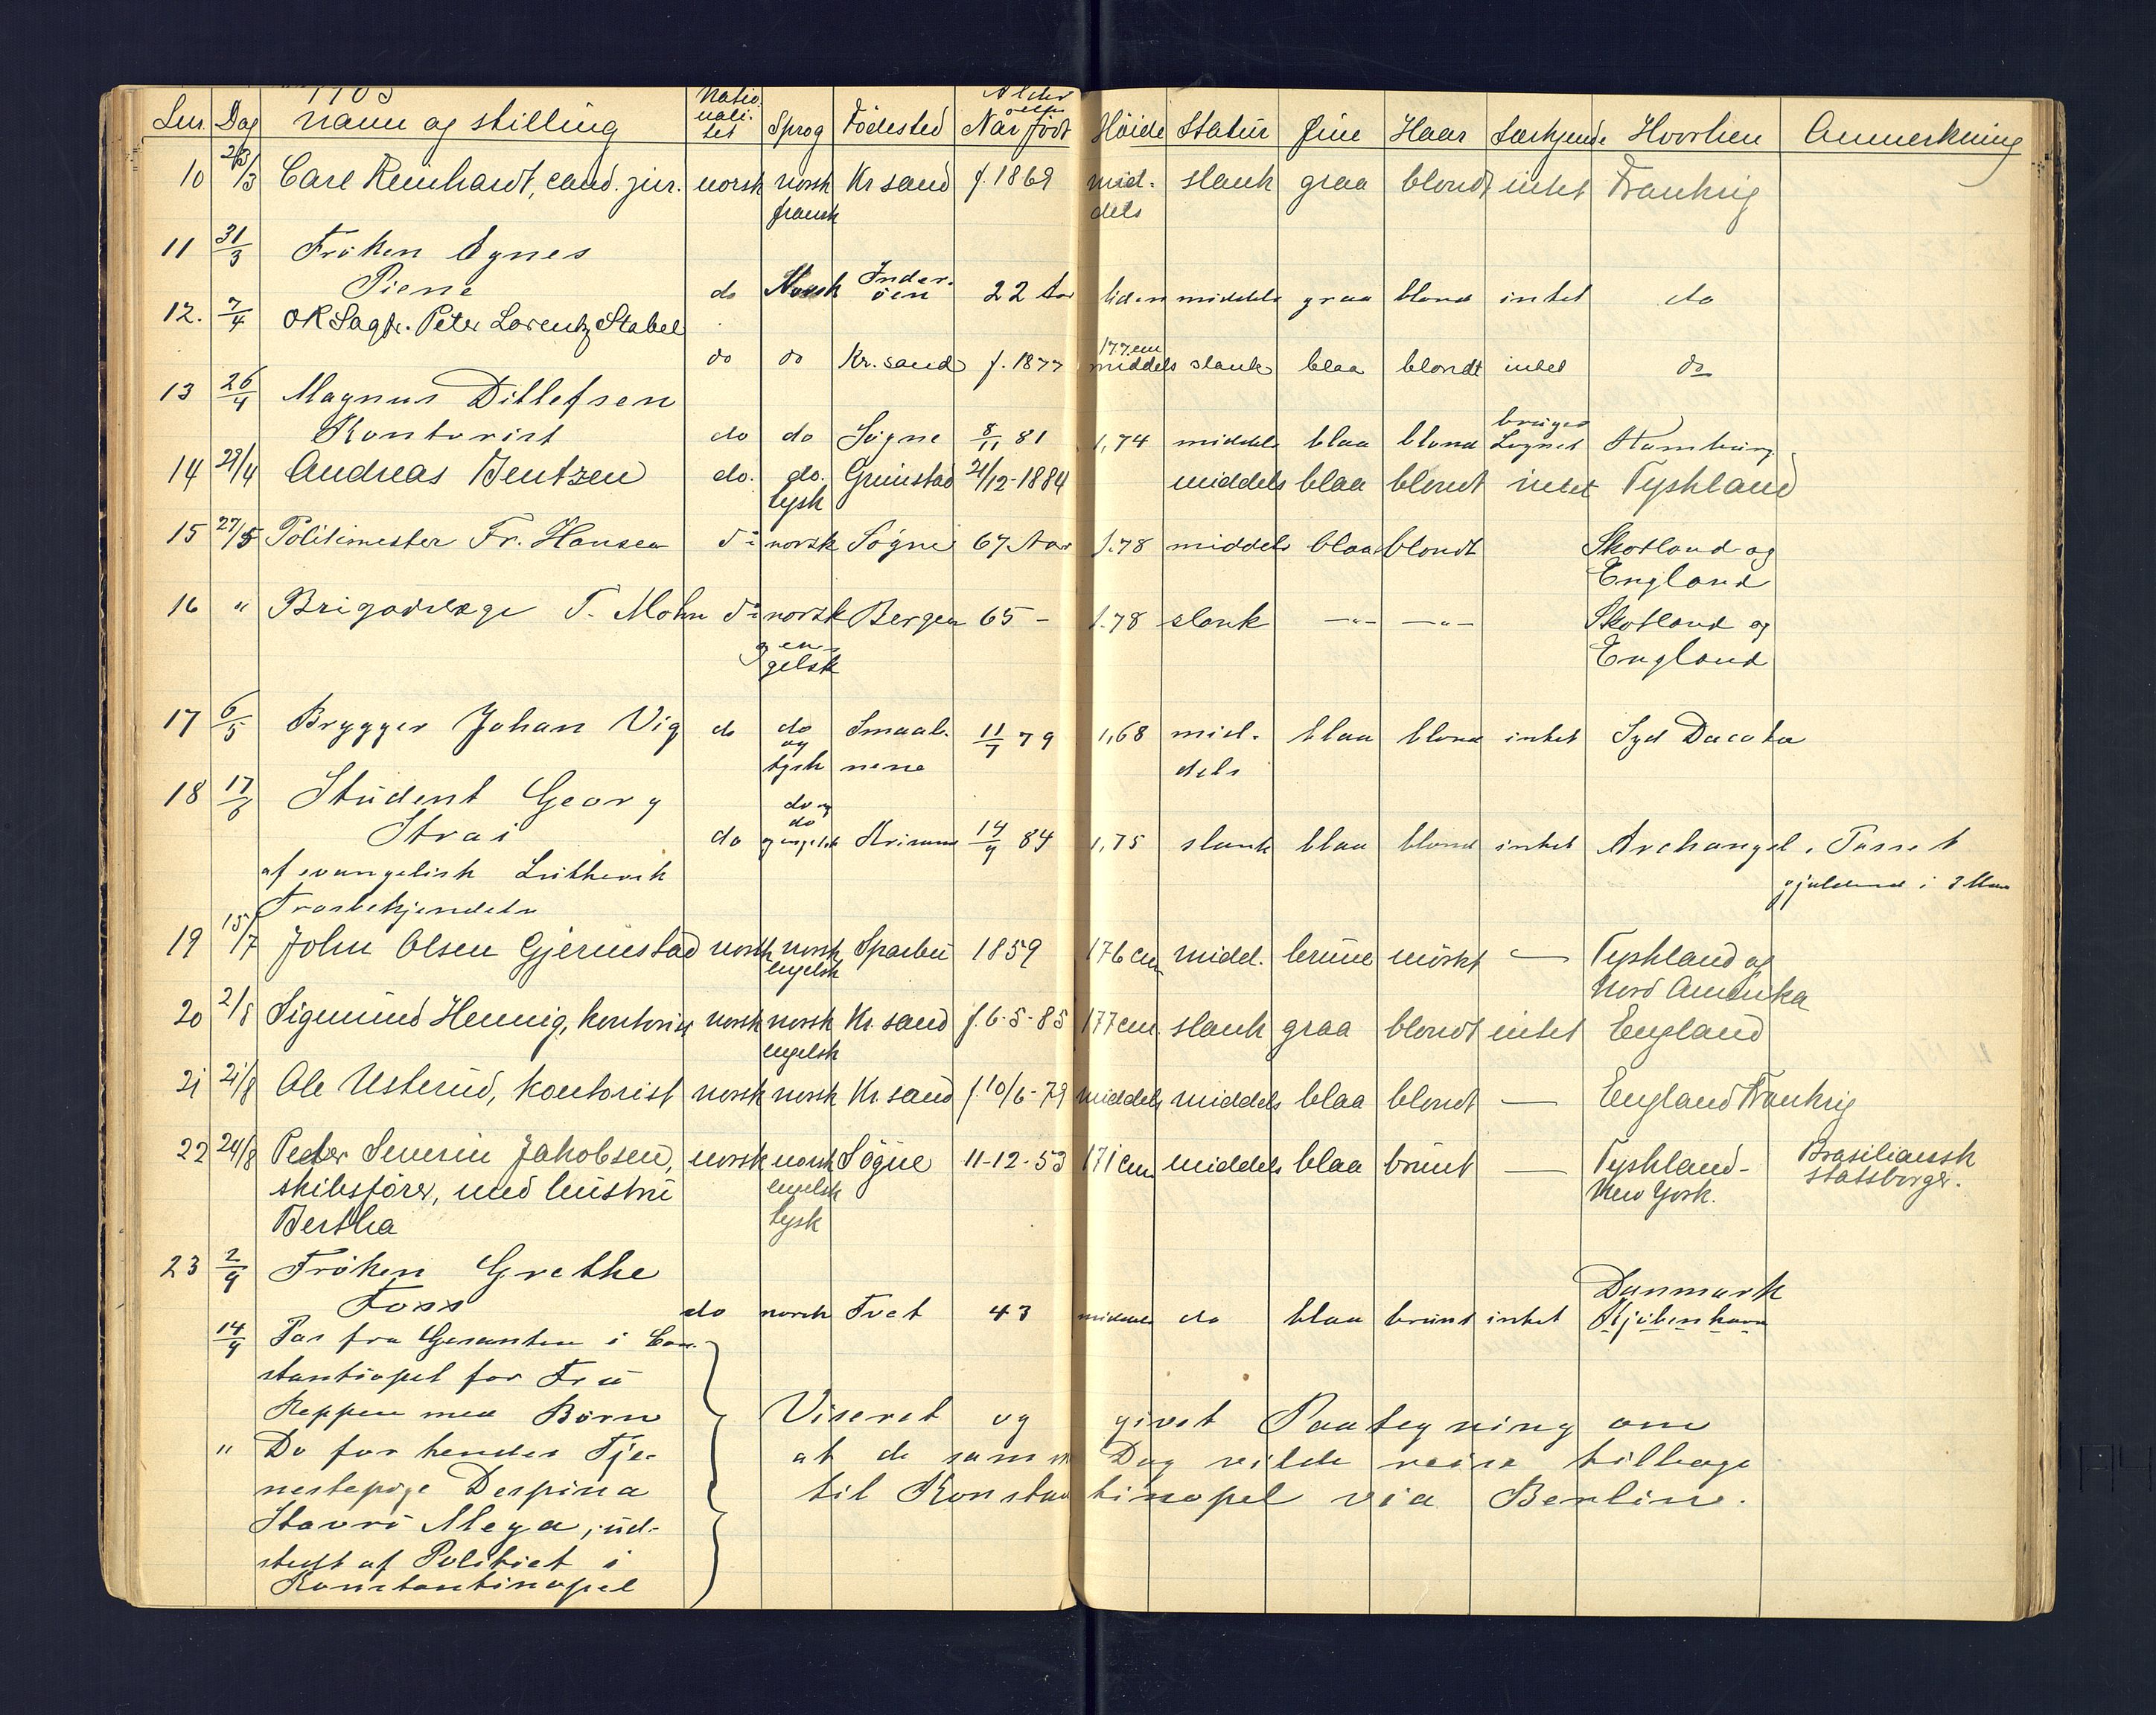 1903
Lnr Dag Navn og stilling Natio- nali- tet Sprog Födested Alder eller Naar födt Höide Statur Öine Haar Særkjende Hvorhen Anmerkning
10 28/3 Carl Reinhardt, cand. jur. norsk norsk Kr sand f. 1869 mid- slank graa blondt intet Frankrig
fransk dels
11 31/3 Fröken Agnes
Piene do Norsk Inder- öen 22 Aar liden middels graa blond intet do
12. 7/4 O R Sagf. Peter Lorentz Stabel
do do Kr. sand f. 1877 177 cm middels slank blaa blondt intet do
13 26/4 Magnus Ditlefsen
Kontorist do do Sögne 8/11 81 1,74 middels blaa blond bruger Lognet Hamburg
14 29/4 Andreas Bentzen do. do. Grimstad 21/12-1884 middels blaa blondt intet Tyskland
tysk
15 27/5 Politimester Fr. Hansen do norsk Sögne 67 Aar 1.78 middels blaa blondt Skotland og
England
16 " Brigadelæge T. Mohn do norsk Bergen 65 - 1.78 slank -"- -"- Skotland og
og en- England
gelsk
17 6/5 Brygger Johan Vig do do Smaal- 11/7 79 1,68 mid- blaa blond intet Syd Dacota
og
tysk nene dels
18 17/6 Student Georg do og
Strai do do og engelsk 14/9 84 1,75 slank blaa blond intet Archangel. Passet
af evangelisk Luthersk gjeldende i 3 Mdr
Trosbekjendelse
19 15/7 John Olsen Gjermstad norsk norsk Sparbu 1859 176 cm midd. brune mörkt — Tyskland og
engelsk Nord Amerika
20 2/8 Sigmund Hennig, kontorist norsk norsk Kr. sand f. 6-5-85 177 cm. slank graa blondt intet England
engelsk
21 21/8 Ole Usterud, kontorist norsk norsk Kr. sand f. 10/6-79 middels middels blaa blondt — England Frankrig
22 24/8 Peder Severin Jakobsen, norsk norsk Sögne 11-12-53 171 cm middels blaa brunt — Tyskland- Brasiliansk
skibsförer, med hustru engelsk New York. statsborger.
Bertha tysk
23 2/9 Fröken Grethe Danmark
Foss do norsk Tvet 43 middels do blaa brunt intet Kjöbenhavn
14/9 Pas fra Gesanten i Con-
stantiopel for Fru
Reppen med Börn Viseret og givet Paategning om
" Do for hendes Tje- at de samme Dag vilde reise tilbage
nestepige Despina til Konstantinopel via Berlin.
Stavri Mega, ud-
stedt af Politiet i
Konstantinopel